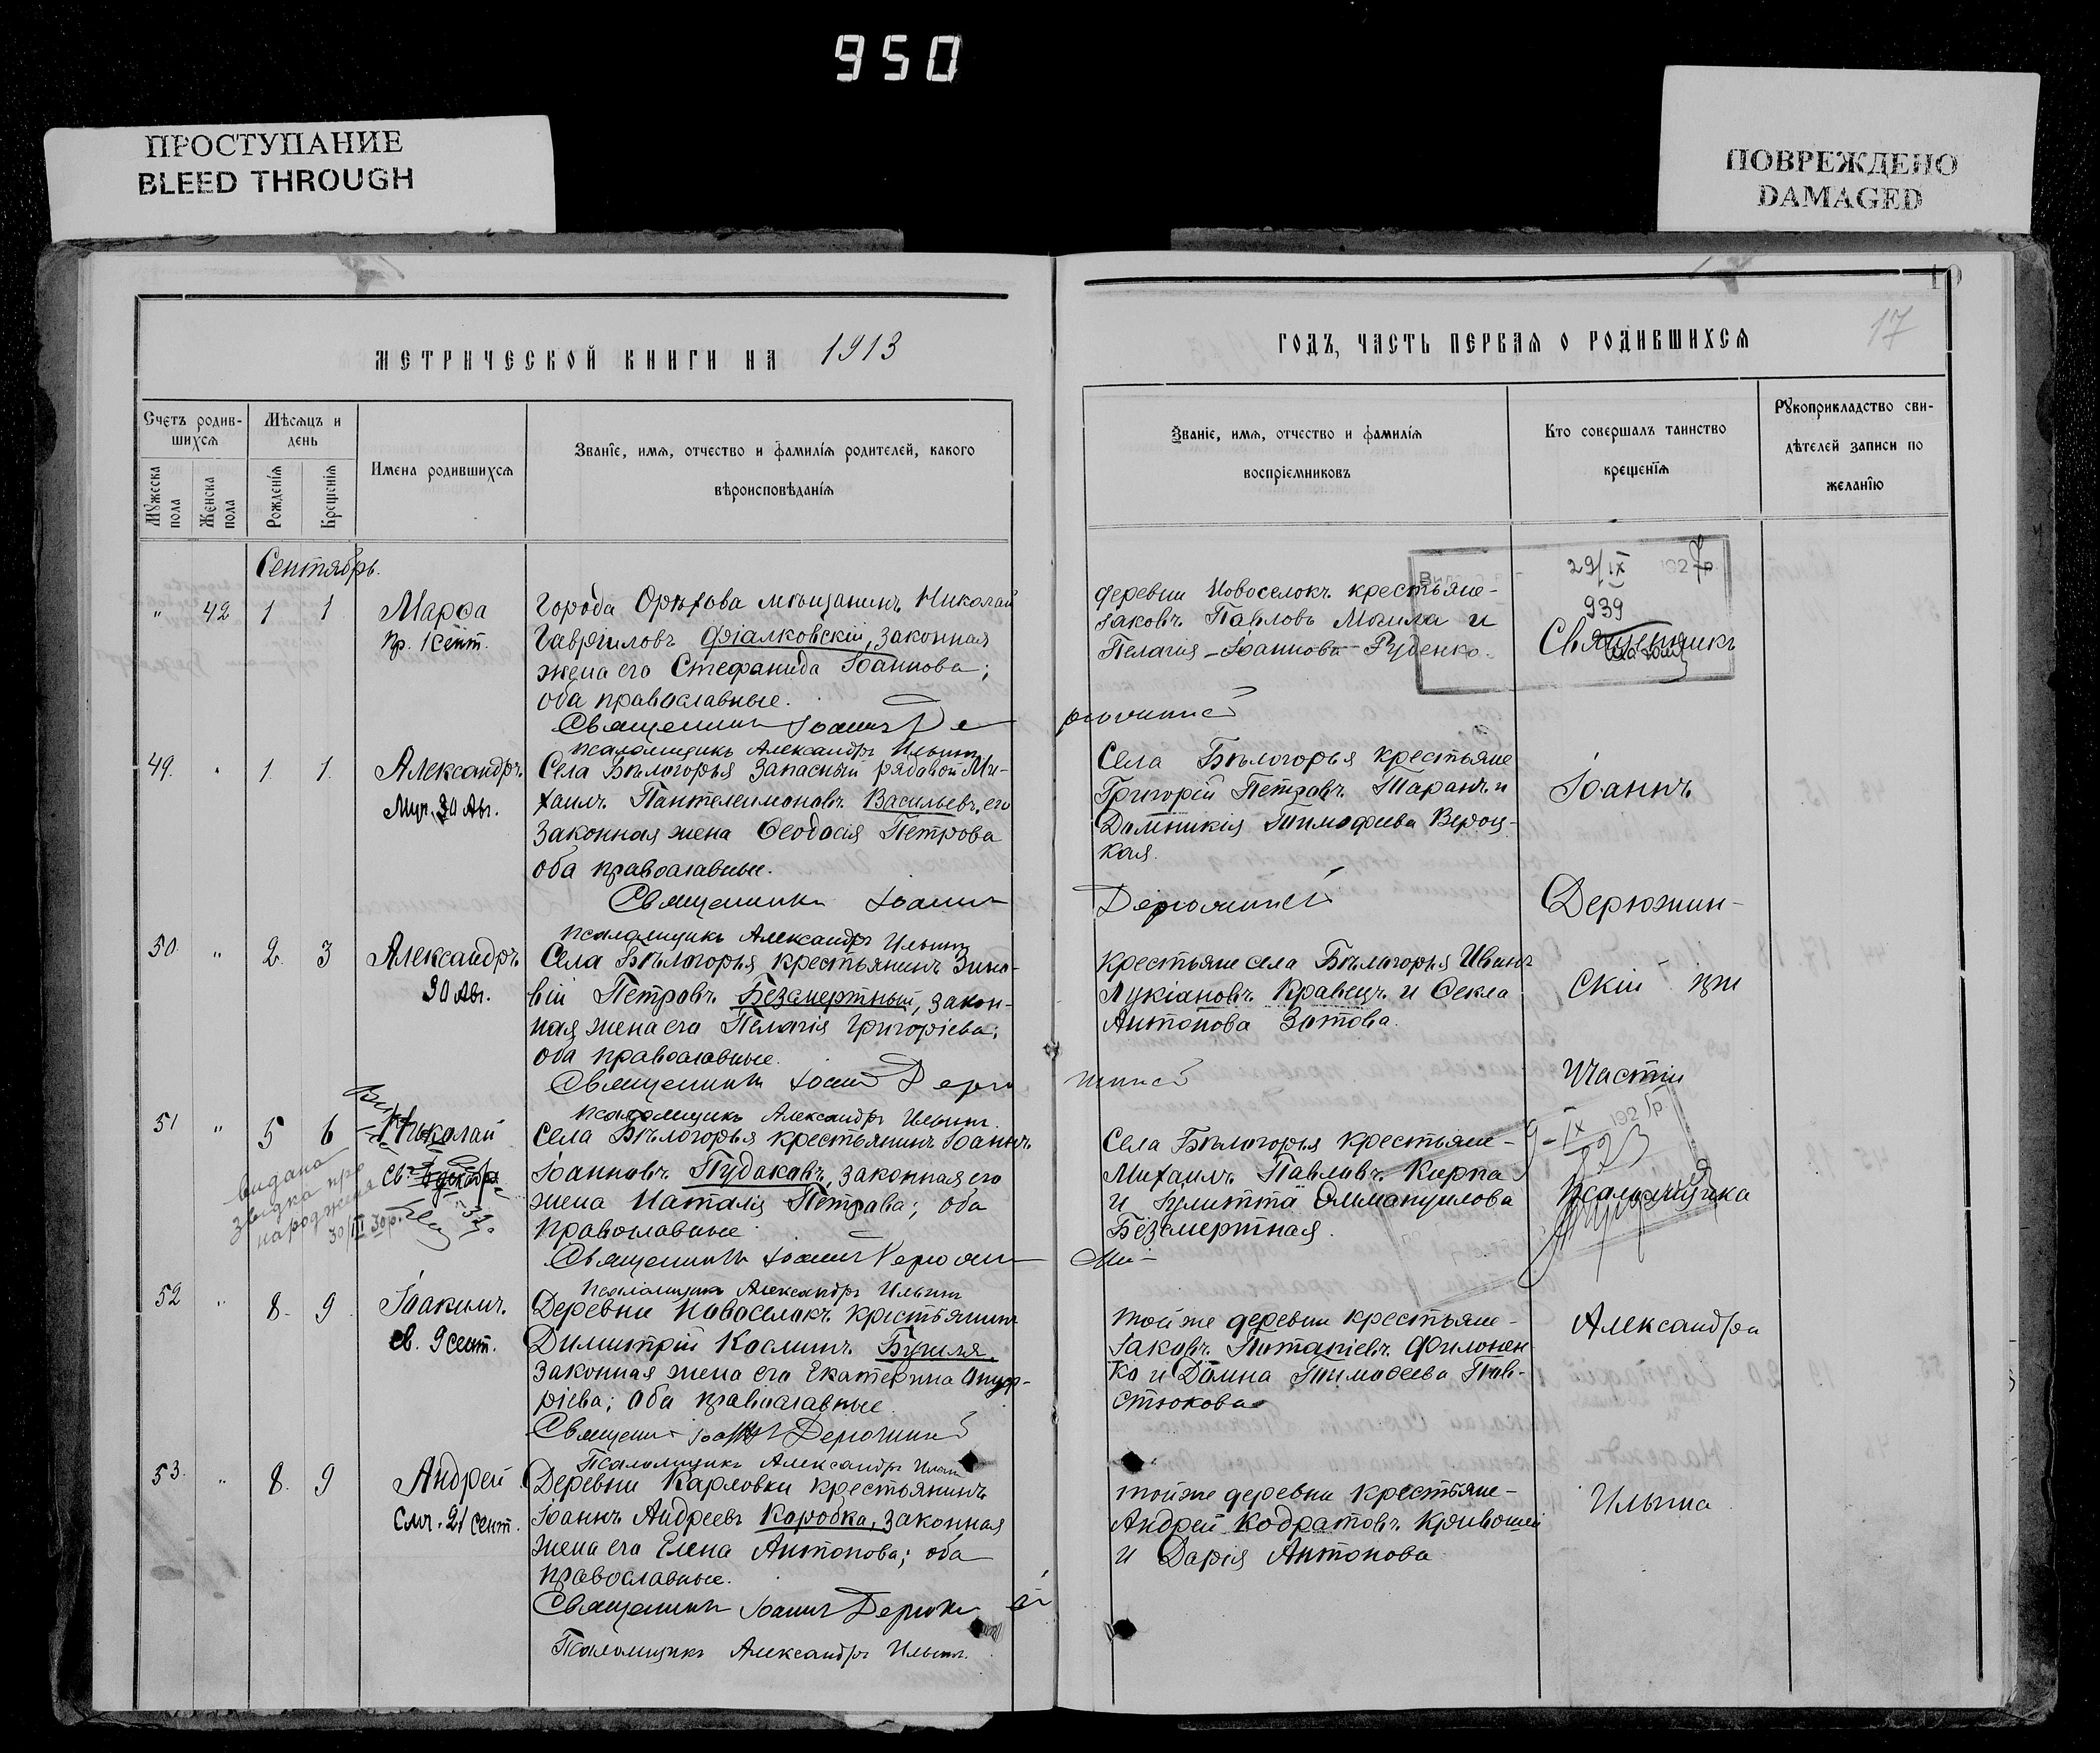 950
ПРОСТУПАНИЕ
BLEED THROUGH
ПОВРЕЖДЕНО
DAMAGED
МЕТРИЧЕСКОЙ КНИГИ НА 1913
Счетъ родив-
шихся
Мѣсяцъ и
день
Имена родившихся
Званіе, имя, отчество и фамилія родителей, какого
вѣроисповѣданія
Мужеска
пола
Женска
пола
Рожденія
Крещенія
Сентябрь.
" 42 1 1
Марѳа
Пр. 1 сент.
Города Орѣхова мѣщанинъ Николай
Гавріиловъ Фіалковскій, законная
жена его Стефанида Іоаннова;
оба православные.
Священникъ Іоаннъ Де
Псаломщикъ Александръ Ильинъ
49. " 1. 1.
Александръ.
Муч. 30 Авг.
Села Бѣлогорья запасный рядовой Ми-
хаилъ Пантелеимоновъ Васильевъ, его
законная жена Ѳеодосія Петрова
оба православные.
Священникъ Іоаннъ
Псаломщикъ Александръ Ильинъ
50 " 2. 3
Александръ
30 Авг.
Села Бѣлогорья крестьянинъ Зино-
вій Петровъ Безсмертный, закон-
ная жена его Пелагія Григоріева;
оба православные.
Священникъ Іоаннъ Дерю
Псаломщикъ Александръ Ильинъ.
51 " 5 6
Николай
видана
звідка про
народження
30/III 30р.
Села Бѣлогорья крестьянинъ Іоаннъ
Іоанновъ Пудаковъ, законная его
жена Наталія Петрова; оба
православные
Священникъ Іоаннъ Дерюжин
Псаломщикъ Александръ Ильинъ
52 " 8. 9
Іоакимъ.
св. 9 сент.
Деревни Новоселокъ крестьянинъ
Димитрій Косминъ Бугиля,
законная жена его Екатерина Онуф-
ріева; оба православные.
Священникъ Іоаннъ Дерюжинскій
Псаломщикъ Александръ Ильинъ
53. " 8. 9
Андрей
Смч. 21 сент.
Деревни Карловки крестьянинъ
Іоаннъ Андреевъ Коробка, законная
жена его Елена Антонова; оба
православные.
Священникъ Іоаннъ Дерюж
Псаломщикъ Александръ Ильинъ.
ГОДЪ, ЧАСТЬ ПЕРВАЯ О РОДИВШИХСЯ
17
Званіе, имя, отчество и фамилія
воспріемниковъ
Кто совершалъ таинство
крещенія
Рукоприкладство сви-
дѣтелей записи по
желанію
деревни Новоселокъ крестьяне-
Іаковъ Павловъ Могила и
Пелагія Іоаннова Руденко.
29/IX 1927р.
939
Священникъ
Села Бѣлогорья крестьяне
Григорій Петровъ Таранъ и
Домникія Тимофеева Вероц-
кая.
Іоаннъ
Дерюжинскій
Дерюжин-
крестьяне села Бѣлогорья Иванъ
Лукіановъ Кравецъ и Ѳекла
Антонова Зотова.
скій при
участіи
Села Бѣлогорья крестьяне-
Михаилъ Павловъ Карпа
и Іулитта Еммануилова
Безсмертная.
псаломщика
тойже деревни крестьяне-
Іаковъ Потапіевъ Филонен
ко и Домна Тимоѳеева Пав-
стюкова
Александра
тойже деревни крестьяне-
Андрей Кодратовъ Кривошей
и Дарія Антонова
Ильина